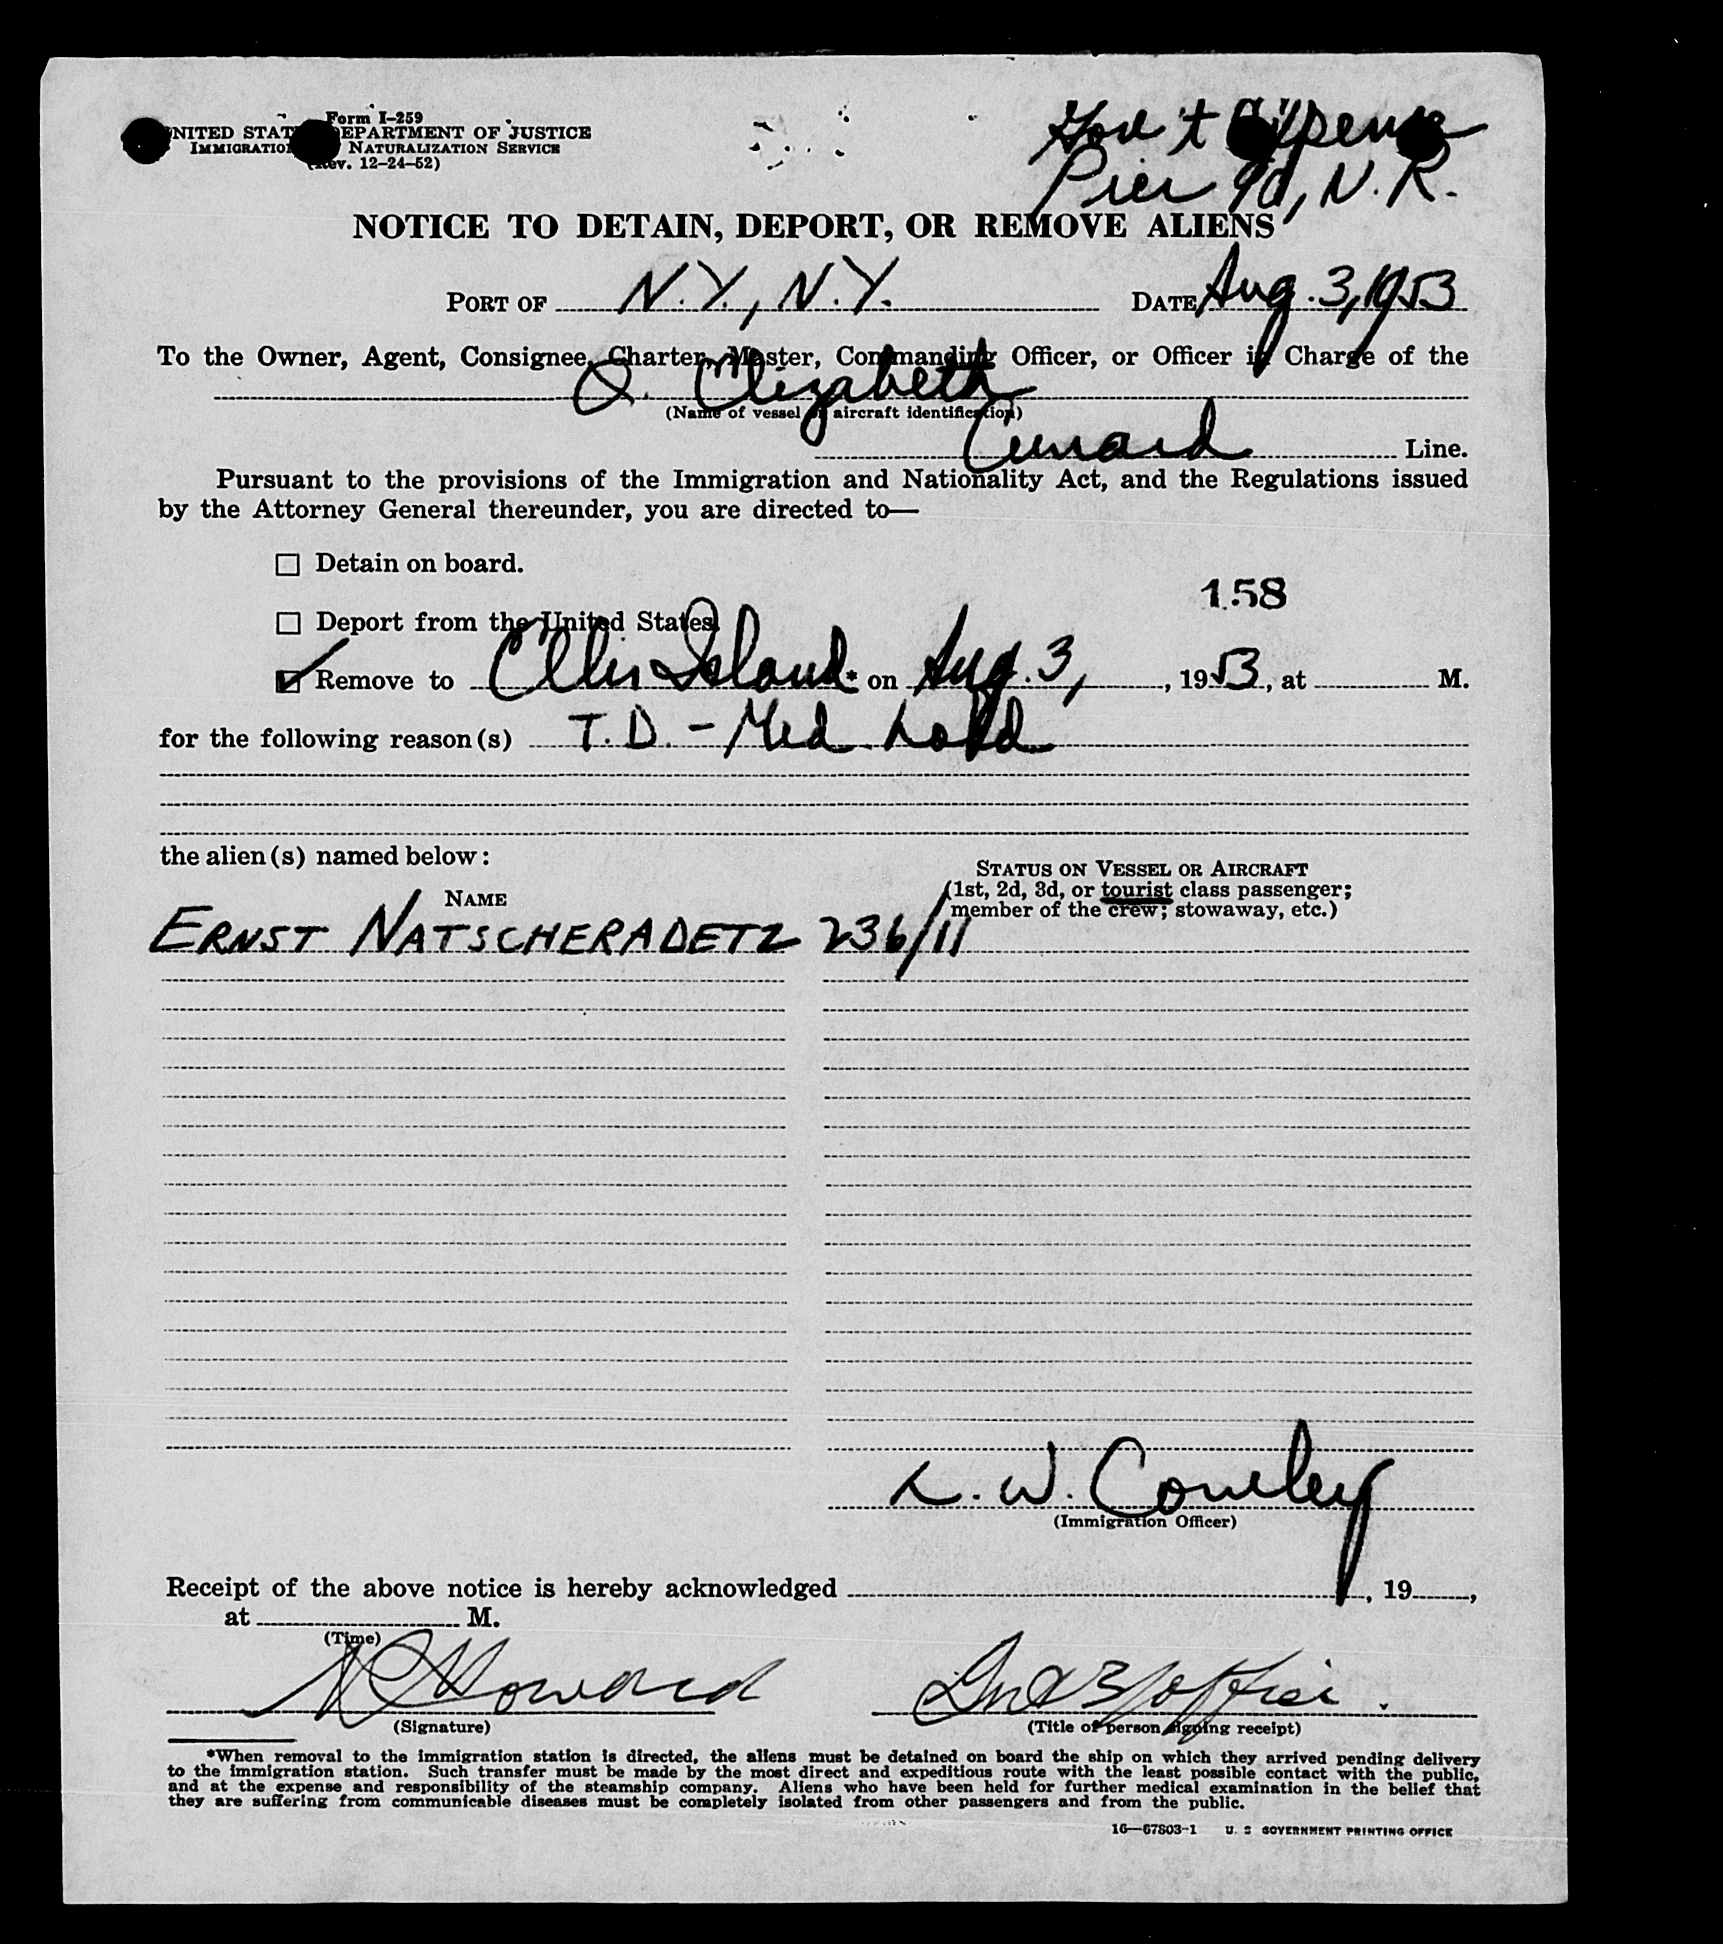 Form I-259
UNITED STATES DEPARTMENT OF JUSTICE
IMMIGRATION NATURALIZATION SERVICE
(Rev. 12-24-52)
Gov't Expense
Pier 90, N.R.
NOTICE TO DETAIN, DEPORT, OR REMOVE ALIENS
PORT OF N.Y., N.Y. DATE Aug. 3, 1953
To the Owner, Agent, Consignee, Charter, Master, Commanding Officer, or Officer in Charge of the
Q. Elizabeth
(Name of vessel or aircraft identification)
Cunard Line.
Pursuant to the provisions of the Immigration and Nationality Act, and the Regulations issued
by the Attorney General thereunder, you are directed to—
☐ Detain on board.
158
☐ Deport from the United States.
☑ Remove to Ellis Island* on Aug. 3, , 1953, at M.
for the following reason(s) T.D. - Med. Hold
the alien(s) named below:
NAME
STATUS ON VESSEL OR AIRCRAFT
(1st, 2d, 3d, or tourist class passenger;
member of the crew; stowaway, etc.)
ERNST NATSCHERADETZ 236/11
L. W. Cowley
(Immigration Officer)
Receipt of the above notice is hereby acknowledged , 19 ,
at M.
(Time)
Howard
(Signature)
(Title of person signing receipt)
*When removal to the immigration station is directed, the aliens must be detained on board the ship on which they arrived pending delivery
to the immigration station. Such transfer must be made by the most direct and expeditious route with the least possible contact with the public,
and at the expense and responsibility of the steamship company. Aliens who have been held for further medical examination in the belief that
they are suffering from communicable diseases must be completely isolated from other passengers and from the public.
16—67803-1 U. S GOVERNMENT PRINTING OFFICE